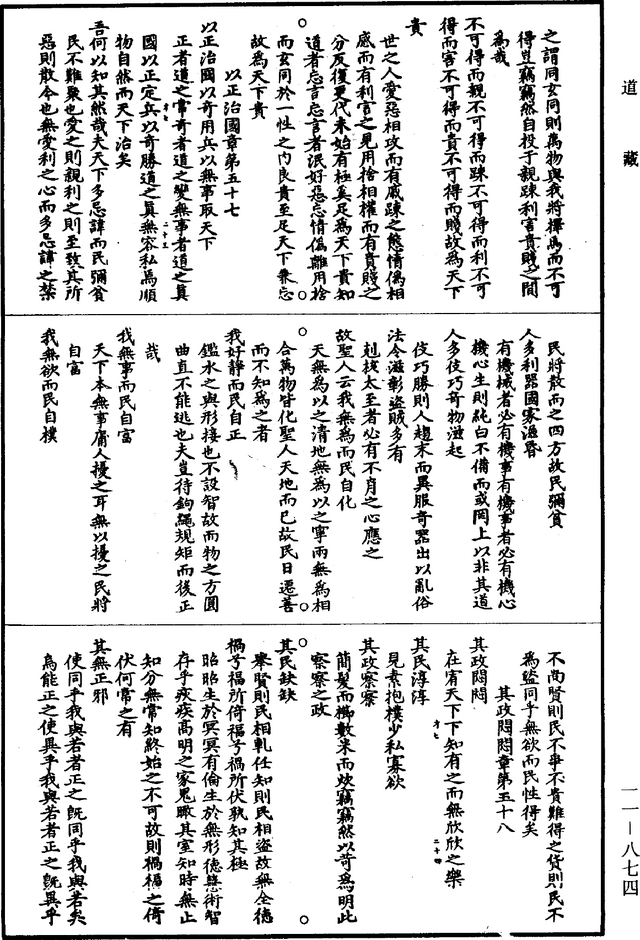 道藏
之謂同玄同則萬物與我將擇焉而不可
得豈竊竊然自投于親踈利害貴賤之間
爲哉
不可得而親不可得而踈不可得而利不可
得而害不可得而貴不可得而賤故爲天下
貴
世之人愛惡相攻而有慼踈之態情僞相
感而有利害之見用捨相權而有貴賤之
分反復更代未始有極奚足爲天下貴知
道者忘言忘言者泯好惡忘情僞離用捨
而玄同於一性之內良貴至足天下兼忘
故爲天下貴
以正治國章第五十七
以正治國以奇用兵以無事取天下
正者道之常奇者道之變無事者道之真
國以正定兵以奇勝道之真無容私焉順
物自然而天下治矣
吾何以知其然哉夫天下多忌諱而民彌貧
民不難聚也愛之則親利之則至致其所
惡則散今也無愛利之心而多忌諱之禁
民將散而之四方故民彌貧
人多利器國家滋昬
有機械者必有機事有機事者必有機心
機心生則純白不備而或罔上以非其道
人多伎巧奇物滋起
伎巧勝則人趨末而異服奇器出以亂俗
法令滋彰盜賊多有
剋核太至者必有不肖之心應之
故聖人云我無爲而民自化
天無爲以之清地無爲以之寧兩無爲相
合萬物皆化聖人天地而已故民日遷善
而不知爲之者
我好靜而民自正
鑑水之與形接也不設智故而物之方圓
曲直不能逃也夫豈待鉤繩規矩而後正
哉
我無事而民自富
天下本無事庸人擾之耳無以擾之民將
自富
我無欲而民自樸
不尚賢則民不爭不貴難得之貨則民不
爲盜同乎無欲而民性得矣
其政悶悶章第五十八
其政悶悶
在宥天下下知有之而無欣欣之樂
其民淳淳
見素抱樸少私寡欲
其政察察
簡髮而櫛數米而炊竊竊然以苛爲明此
察察之政
其民缺缺
舉賢則民相軋任知則民相盜故無全德
禍兮福所倚福兮禍所伏孰知其極
昭昭生於冥冥有倫生於無形德慧術智
存乎疢疾高明之家鬼瞰其室知時無止
知分無常知終始之不可故則禍福之倚
伏何常之有
其無正邪
使同乎我與若者正之既同乎我與若矣
烏能正之使異乎我與若者正之既異乎
一一—八七四